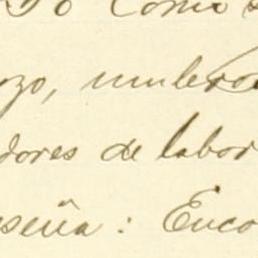 Como
ozo, mulero
dores de labor
seña: Enco